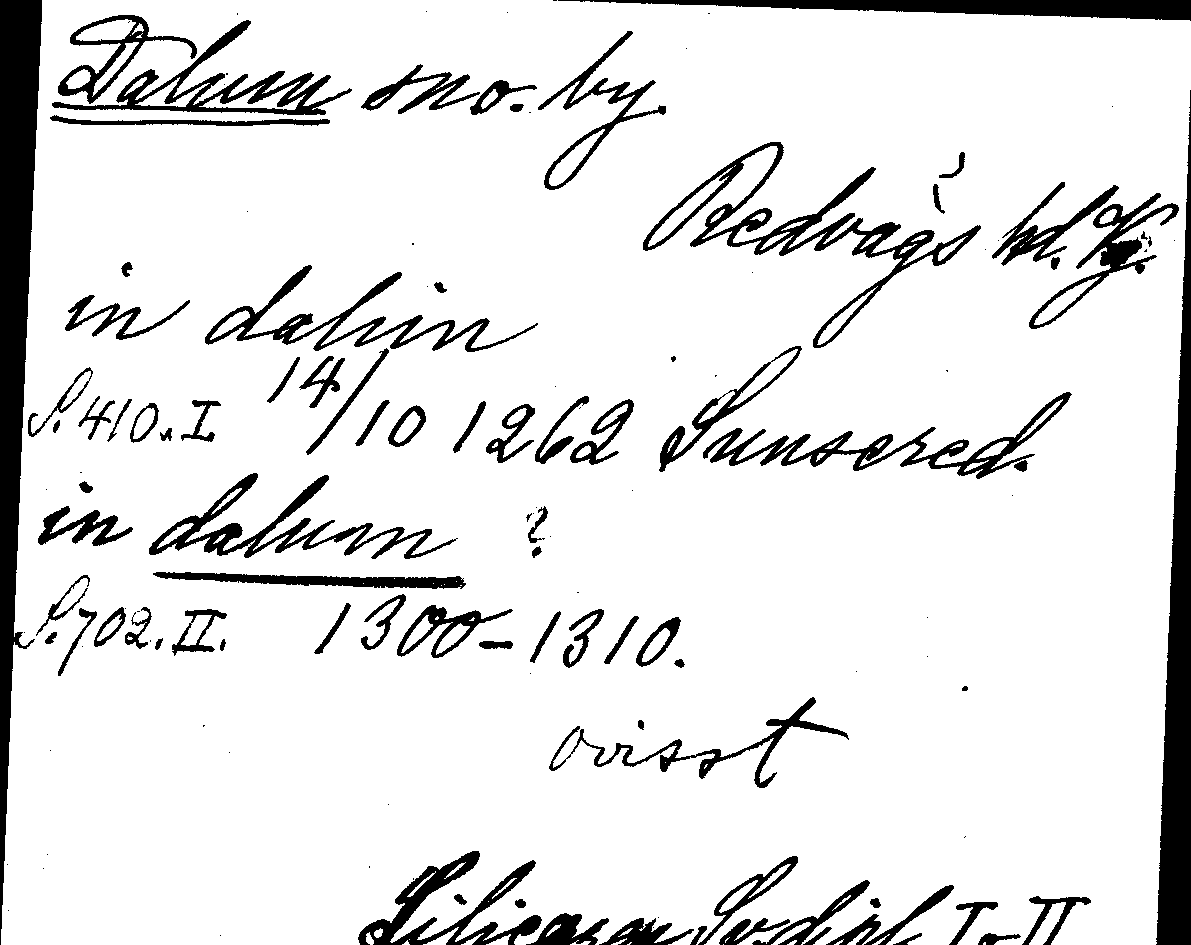 Dalum sno. by.
Redvägs hd. Vg.
in daliin
S. 410. I. 14/10 1262 Sunsered.
in dalum ?
S. 702. II. 1300-1310.
ovisst
Sv. dipl. I-II